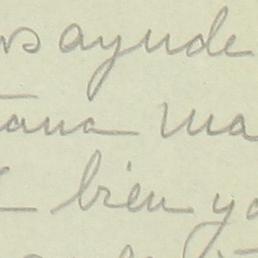 os ayude
tana ma
bien yo